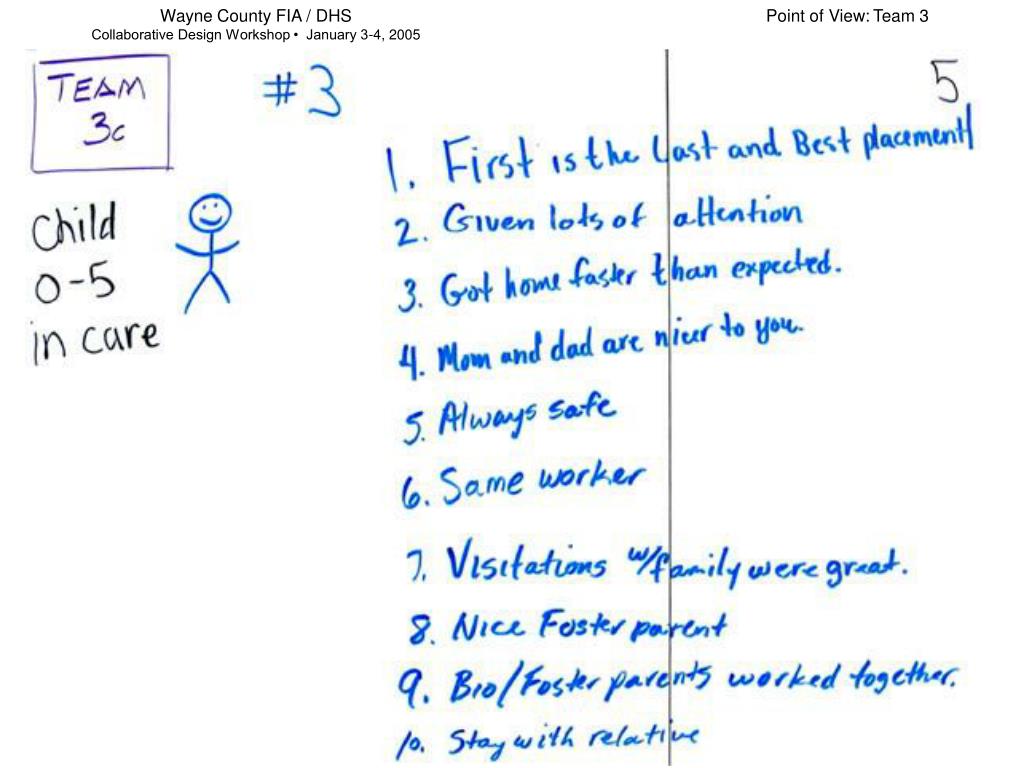 Wayne County FIA / DHS
Point of View: Team 3
Collaborative Design Workshop • January 3-4, 2005
TEAM
3c
#3
5
Child
0-5
in care
1. First is the Last and Best placement
2. Given lots of attention
3. Got home faster than expected.
4. Mom and dad are nicer to you.
5. Always safe
6. Same worker
7. Visitations w/family were great.
8. Nice Foster parent
9. Bio/Foster parents worked together.
10. Stay with relative